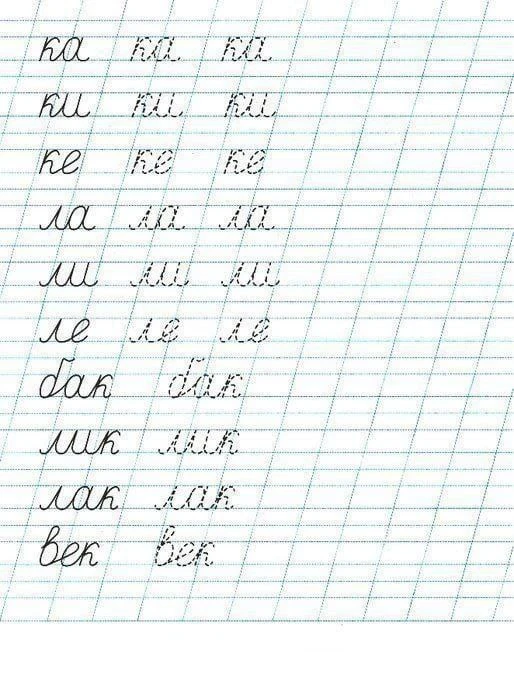 ка ка ка
ки ки ки
ке ке ке
ла ла ла
ли ли ли
ле ле ле
бак бак
лик лик
лак лак
век век